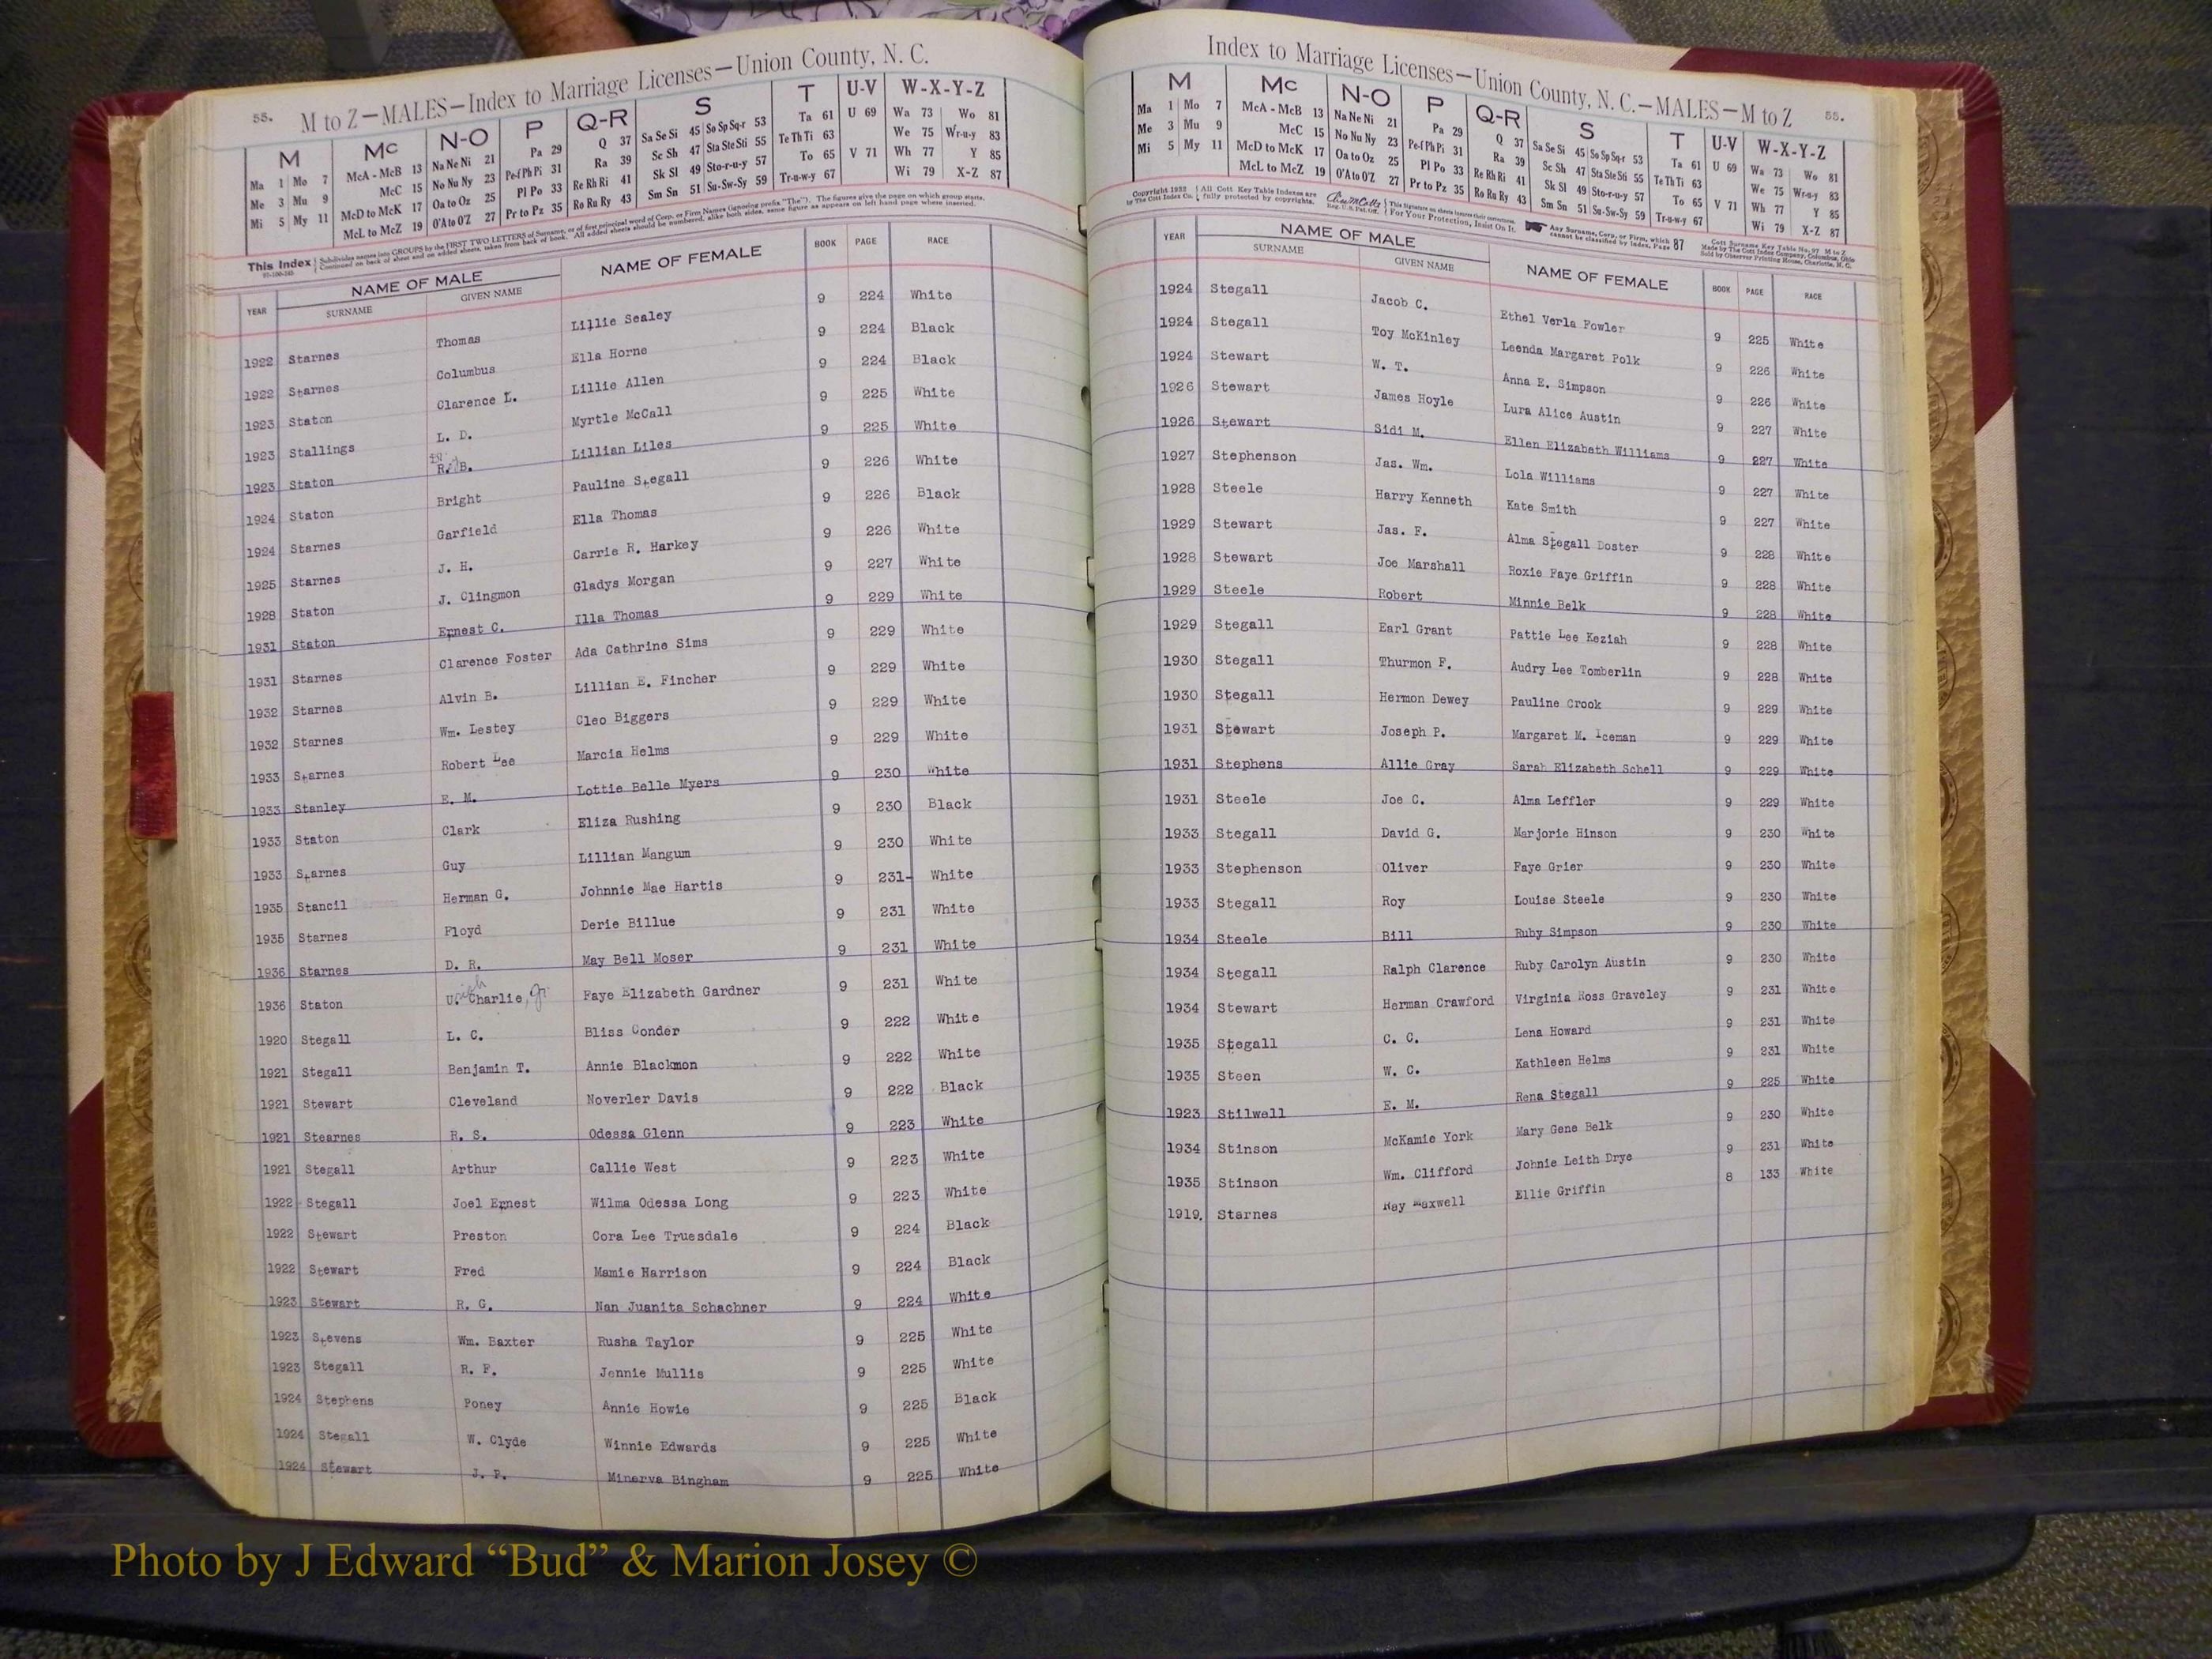 55. M to Z—MALES—Index to Marriage Licenses—Union County, N. C.
M Mc N-O P Q-R S T U-V W-X-Y-Z
Ma 1 Mo 7 McA - McB 13 Na Ne Ni 21 Pa 29 Q 37 Sa Se Si 45 So Sp Sq-r 53 Ta 61 U 69 Wa 73 Wo 81
Me 3 Mu 9 McC 15 No Nu Ny 23 Pe-f Ph Pi 31 Ra 39 Sc Sh 47 Sta Ste Sti 55 Te Th Ti 63 We 75 Wr-u-y 83
Mi 5 My 11 McD to McK 17 Oa to Oz 25 Pl Po 33 Re Rh Ri 41 Sk Sl 49 Sto-r-u-y 57 To 65 V 71 Wh 77 Y 85
McL to McZ 19 O'A to O'Z 27 Pr to Pz 35 Ro Ru Ry 43 Sm Sn 51 Su-Sw-Sy 59 Tr-u-w-y 67 Wi 79 X-Z 87
This Index Subdivides names into GROUPS by the FIRST TWO LETTERS of Surname, or of first principal word of Corp. or Firm Names (ignoring prefix "The"). The figures give the page on which group starts.
Continued on back of sheet and on added sheets, taken from back of book. All added sheets should be numbered, alike both sides, same figure as appears on left hand page where inserted.
YEAR NAME OF MALE NAME OF FEMALE BOOK PAGE RACE
SURNAME GIVEN NAME
1922 Starnes Thomas Lillie Sealey 9 224 White
1922 Starnes Columbus Ella Horne 9 224 Black
1923 Staton Clarence L. Lillie Allen 9 224 Black
1923 Stallings L. D. Myrtle McCall 9 225 White
1923 Staton R. B. Lillian Liles 9 225 White
1924 Staton Bright Pauline Stegall 9 226 White
1924 Starnes Garfield Ella Thomas 9 226 Black
1925 Starnes J. H. Carrie R. Harkey 9 226 White
1928 Staton J. Clingmon Gladys Morgan 9 227 White
1931 Staton Ernest C. Illa Thomas 9 229 White
1931 Starnes Clarence Foster Ada Cathrine Sims 9 229 White
1932 Starnes Alvin B. Lillian E. Fincher 9 229 White
1932 Starnes Wm. Lestey Cleo Biggers 9 229 White
1933 Starnes Robert Lee Marcia Helms 9 229 White
1933 Stanley E. M. Lottie Belle Myers 9 230 White
1933 Staton Clark Eliza Rushing 9 230 Black
1933 Starnes Guy Lillian Mangum 9 230 White
1935 Stancil Herman G. Johnnie Mae Hartis 9 231- White
1935 Starnes Floyd Derie Billue 9 231 White
1936 Starnes D. R. May Bell Moser 9 231 White
1936 Staton U. Charlie, Jr. Faye Elizabeth Gardner 9 231 White
1920 Stegall L. C. Bliss Conder 9 222 White
1921 Stegall Benjamin T. Annie Blackmon 9 222 White
1921 Stewart Cleveland Noverler Davis 9 222 Black
1921 Stearnes R. S. Odessa Glenn 9 223 White
1921 Stegall Arthur Callie West 9 223 White
1922 Stegall Joel Ernest Wilma Odessa Long 9 223 White
1922 Stewart Preston Cora Lee Truesdale 9 224 Black
1922 Stewart Fred Mamie Harrison 9 224 Black
1923 Stewart R. G. Nan Juanita Schachner 9 224 White
1923 Stevens Wm. Baxter Rusha Taylor 9 225 White
1923 Stegall R. F. Jennie Mullis 9 225 White
1924 Stephens Poney Annie Howie 9 225 Black
1924 Stegall W. Clyde Winnie Edwards 9 225 White
1924 Stewart J. P. Minerva Bingham 9 225 White
Index to Marriage Licenses—Union County, N. C.—MALES—M to Z 55.
M Mc N-O P Q-R S T U-V W-X-Y-Z
Ma 1 Mo 7 McA - McB 13 Na Ne Ni 21 Pa 29 Q 37 Sa Se Si 45 So Sp Sq-r 53 Ta 61 U 69 Wa 73 Wo 81
Me 3 Mu 9 McC 15 No Nu Ny 23 Pe-f Ph Pi 31 Ra 39 Sc Sh 47 Sta Ste Sti 55 Te Th Ti 63 We 75 Wr-u-y 83
Mi 5 My 11 McD to McK 17 Oa to Oz 25 Pl Po 33 Re Rh Ri 41 Sk Sl 49 Sto-r-u-y 57 To 65 V 71 Wh 77 Y 85
McL to McZ 19 O'A to O'Z 27 Pr to Pz 35 Ro Ru Ry 43 Sm Sn 51 Su-Sw-Sy 59 Tr-u-w-y 67 Wi 79 X-Z 87
Copyright 1932 by The Cott Index Co. All Cott Key Table Indexes are fully protected by copyrights. For Your Protection, Insist On It. Any Surname, Corp. or Firm, which cannot be classified by Index, Page 87 Cott Surname Key Table No. 97 M to Z Made by The Cott Index Company, Columbus, Ohio Sold by Observer Printing House, Charlotte, N. C.
YEAR NAME OF MALE NAME OF FEMALE BOOK PAGE RACE
SURNAME GIVEN NAME
1924 Stegall Jacob C. Ethel Verla Fowler 9 225 White
1924 Stegall Toy McKinley Leenda Margaret Polk 9 226 White
1924 Stewart W. T. Anna E. Simpson 9 226 White
1926 Stewart James Hoyle Lura Alice Austin 9 227 White
1926 Stewart Sidi M. Ellen Elizabeth Williams 9 227 White
1927 Stephenson Jas. Wm. Lola Williams 9 227 White
1928 Steele Harry Kenneth Kate Smith 9 227 White
1929 Stewart Jas. F. Alma Stegall Doster 9 228 White
1928 Stewart Joe Marshall Roxie Faye Griffin 9 228 White
1929 Steele Robert Minnie Belk 9 228 White
1929 Stegall Earl Grant Pattie Lee Keziah 9 228 White
1930 Stegall Thurmon F. Audry Lee Tomberlin 9 228 White
1930 Stegall Hermon Dewey Pauline Crook 9 229 White
1931 Stewart Joseph P. Margaret M. Iceman 9 229 White
1931 Stephens Allie Gray Sarah Elizabeth Schell 9 229 White
1931 Steele Joe C. Alma Leffler 9 229 White
1933 Stegall David G. Marjorie Hinson 9 230 White
1933 Stephenson Oliver Faye Grier 9 230 White
1933 Stegall Roy Louise Steele 9 230 White
1934 Steele Bill Ruby Simpson 9 230 White
1934 Stegall Ralph Clarence Ruby Carolyn Austin 9 230 White
1934 Stewart Herman Crawford Virginia Ross Graveley 9 231 White
1935 Stegall C. C. Lena Howard 9 231 White
1935 Steen W. C. Kathleen Helms 9 231 White
1923 Stilwell E. M. Rena Stegall 9 225 White
1934 Stinson McKamie York Mary Gene Belk 9 230 White
1935 Stinson Wm. Clifford Johnie Leith Drye 9 231 White
1919. Starnes Ray Maxwell Ellie Griffin 8 133 White
Photo by J Edward “Bud” & Marion Josey ©